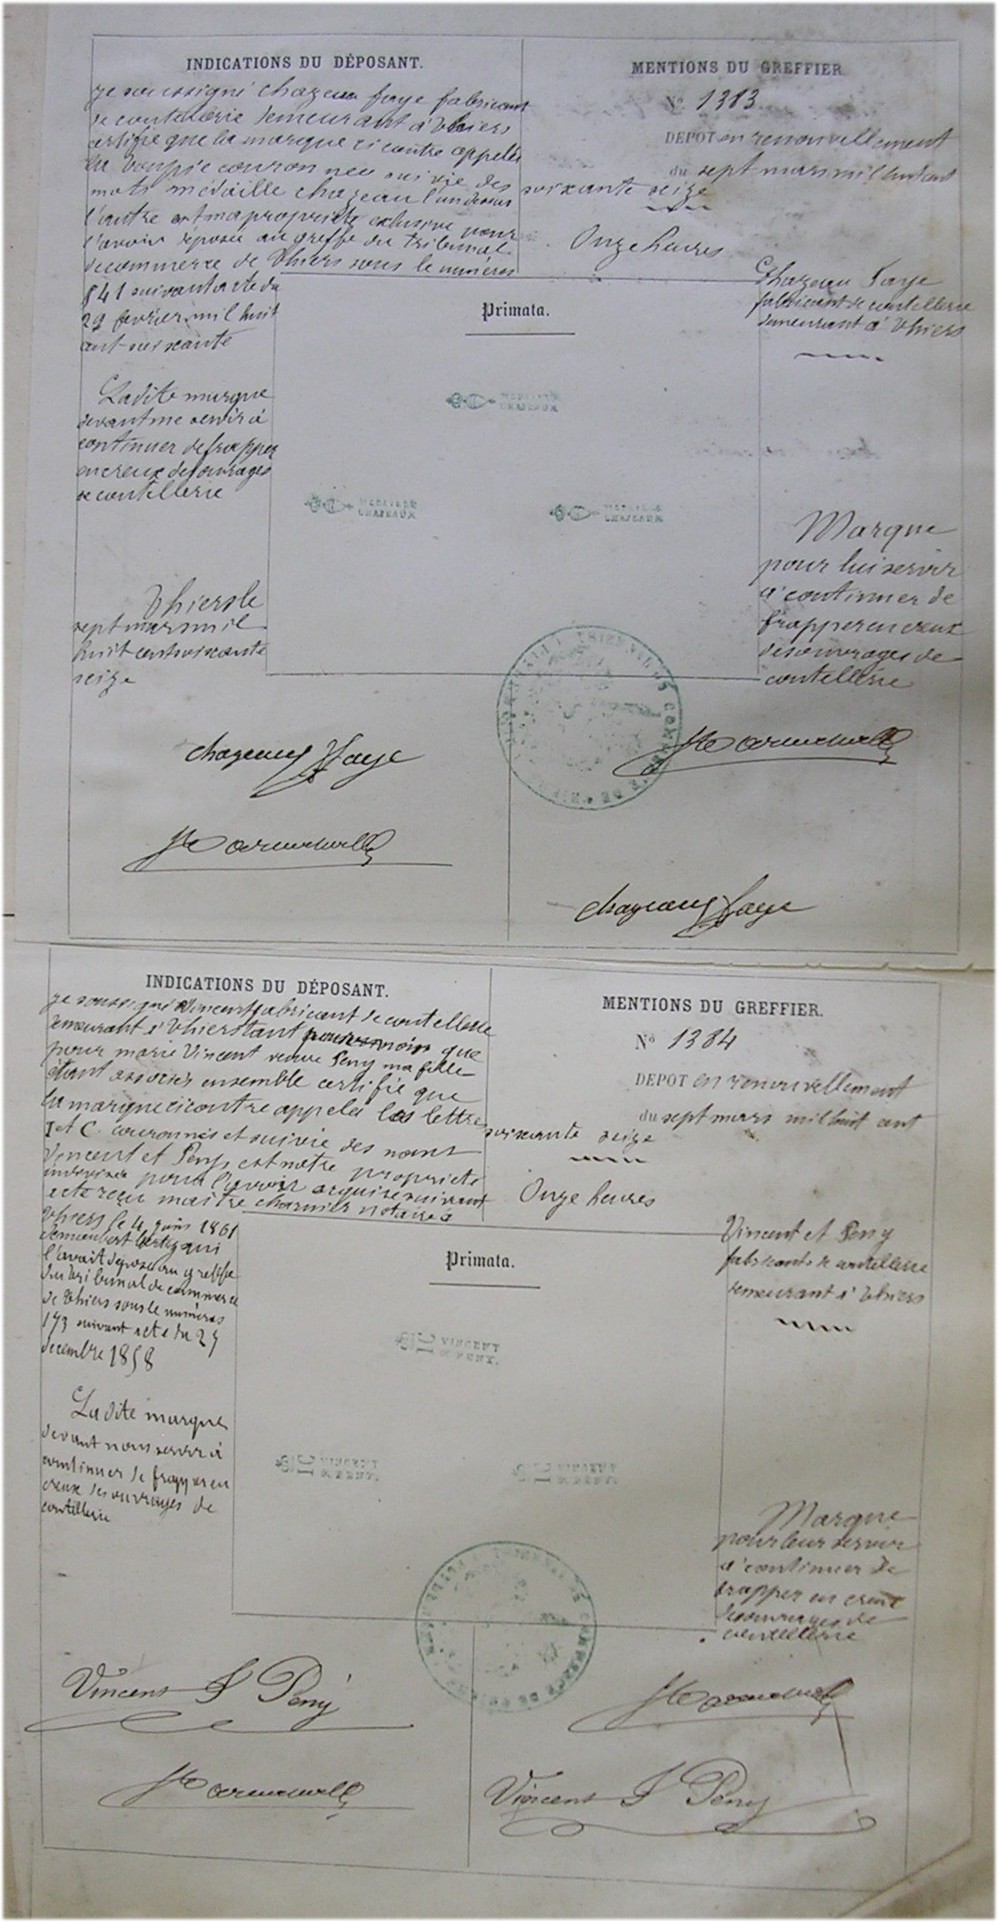 INDICATIONS DU DÉPOSANT.
je soussigné Chazeau faye fabricant
de coutellerie demeurant à Thiers
certifie que la marque ci contre appelée
la Toupie couronnée suivie des
mots médaille chazeau l'un dessus
l'autre est ma propriété exclusive pour
l'avoir déposée au greffe du Tribunal
de commerce de Thiers sous le numéros
841 suivant acte du
29 fevrier mil huit
cent soixante
Ladite marque
devant me servir à
continuer de frapper
en creux des ouvrages
de coutellerie
Thiers le
sept mars mil
huit cent soixante
seize
MENTIONS DU GREFFIER
No 1383
DEPOT en renouvellement
du sept mars mil huit cent
soixante seize
Onze heures
Chazeau Faye
fabricant de coutellerie
demeurant à Thiers
Primata.
MEDAILLE
CHAZEAUX
MEDAILLE
CHAZEAUX
MEDAILLE
CHAZEAUX
Marque
pour lui servir
à continuer de
frapper en creux
des ouvrages de
coutellerie
TRIBUNAL DE COMMERCE DE THIERS
chazeaux faye
chazeaux faye
INDICATIONS DU DÉPOSANT.
je soussigné Vincent fabricant de coutellerie
demeurant à Thiers tant pour moi que
pour marie Vincent veuve Peny ma fille
étant associés ensemble certifie que
la marque ci contre appelée les lettre
I et C. couronnés et suivie des noms
Vincent et Peny est notre propriété
indivise pour l'avoir acquise suivant
acte reçu maitre charnier notaire à
Thiers le 4 juin 1861
l'avait déposée au greffe
du tribunal de commerce
de Thiers sous le numéros
173 suivant acte du 27
decembre 1858
La dite marque
devant nous servir à
continuer de frapper en
creux des ouvrages de
coutellerie
MENTIONS DU GREFFIER.
No 1384
DEPOT en renouvellement
du sept mars mil huit cent
soixante seize
Onze heures
Vincent et Peny
fabricants de coutellerie
demeurant à Thiers
Primata.
IC VINCENT
& PENY.
IC VINCENT
& PENY.
IC VINCENT
& PENY.
Marque
pour leur servir
à continuer de
frapper en creux
des ouvrages de
coutellerie
TRIBUNAL DE COMMERCE DE THIERS
Vincent & Peny
Vincent & Peny